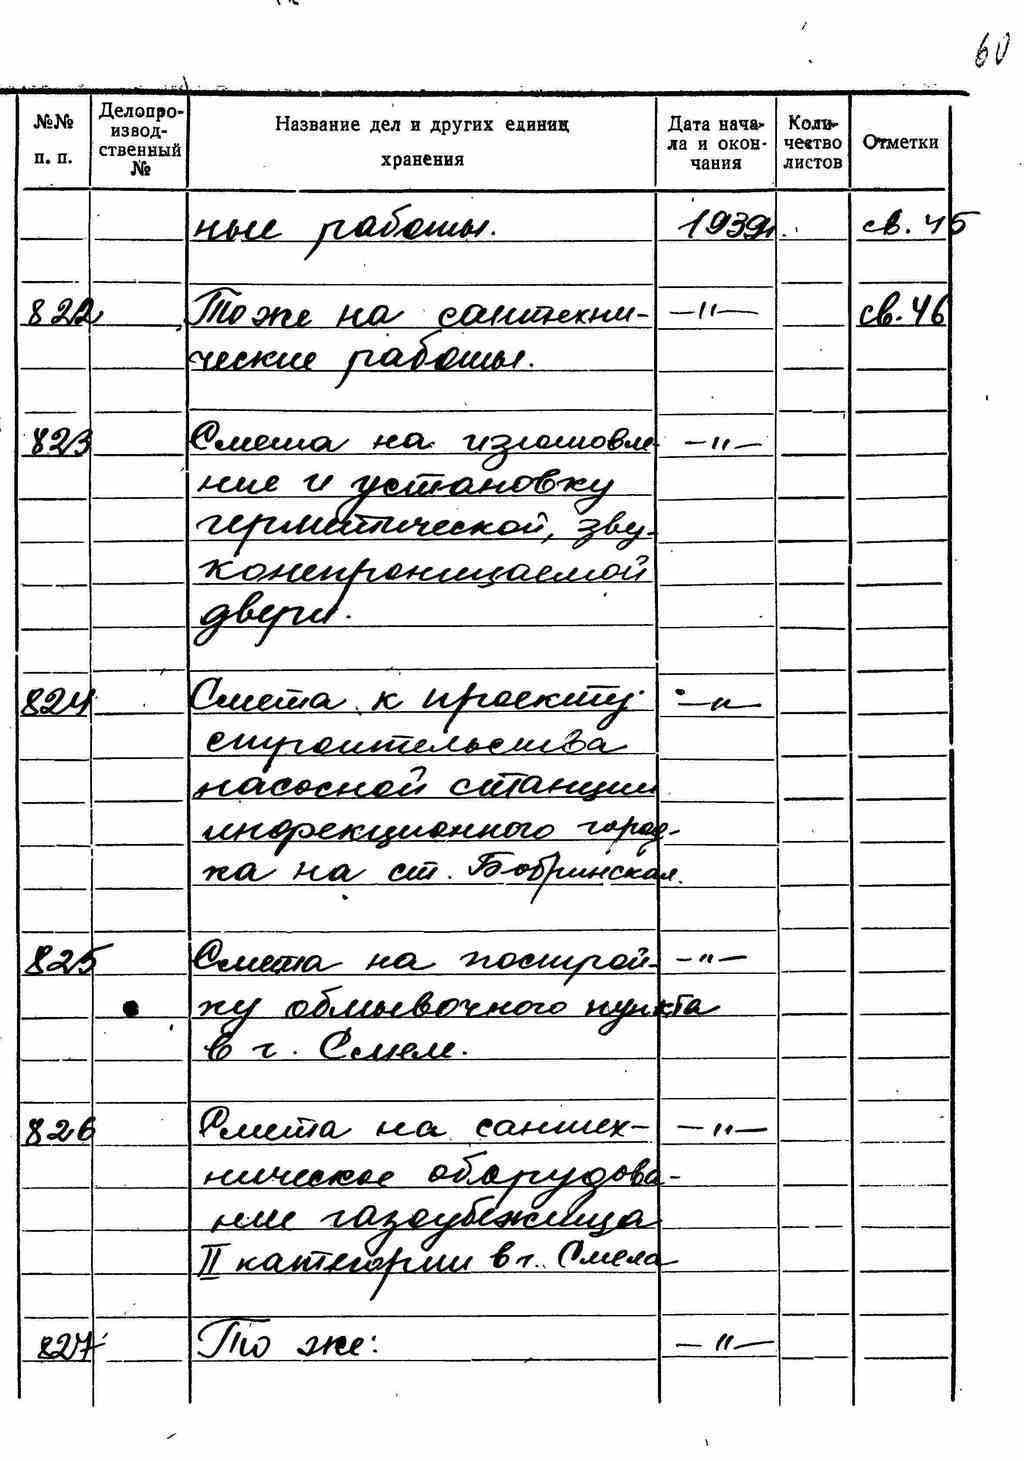 60
№№ п. п. Делопроизвод- ственный № Название дел и других единиц хранения Дата нача- ла и окон- чания Коли- чество листов Отметки
ные работы. 1939г. св. 45
822 То же на сантехни- —"— св. 46
ческие работы.
823 Смета на изготовле —"—
ние и установку
герметической, зву-
конепроницаемой
двери.
824 Смета к проекту —"—
строительства
насосной станции
инфекционного город-
ка на ст. Бобринская.
825 Смета на построй- —"—
ку обмывочного пункта
в г. Смеле.
826 Смета на сантех- —"—
ническое оборудова-
ние газоубежища
II категории в г. Смела
827 То же: —"—